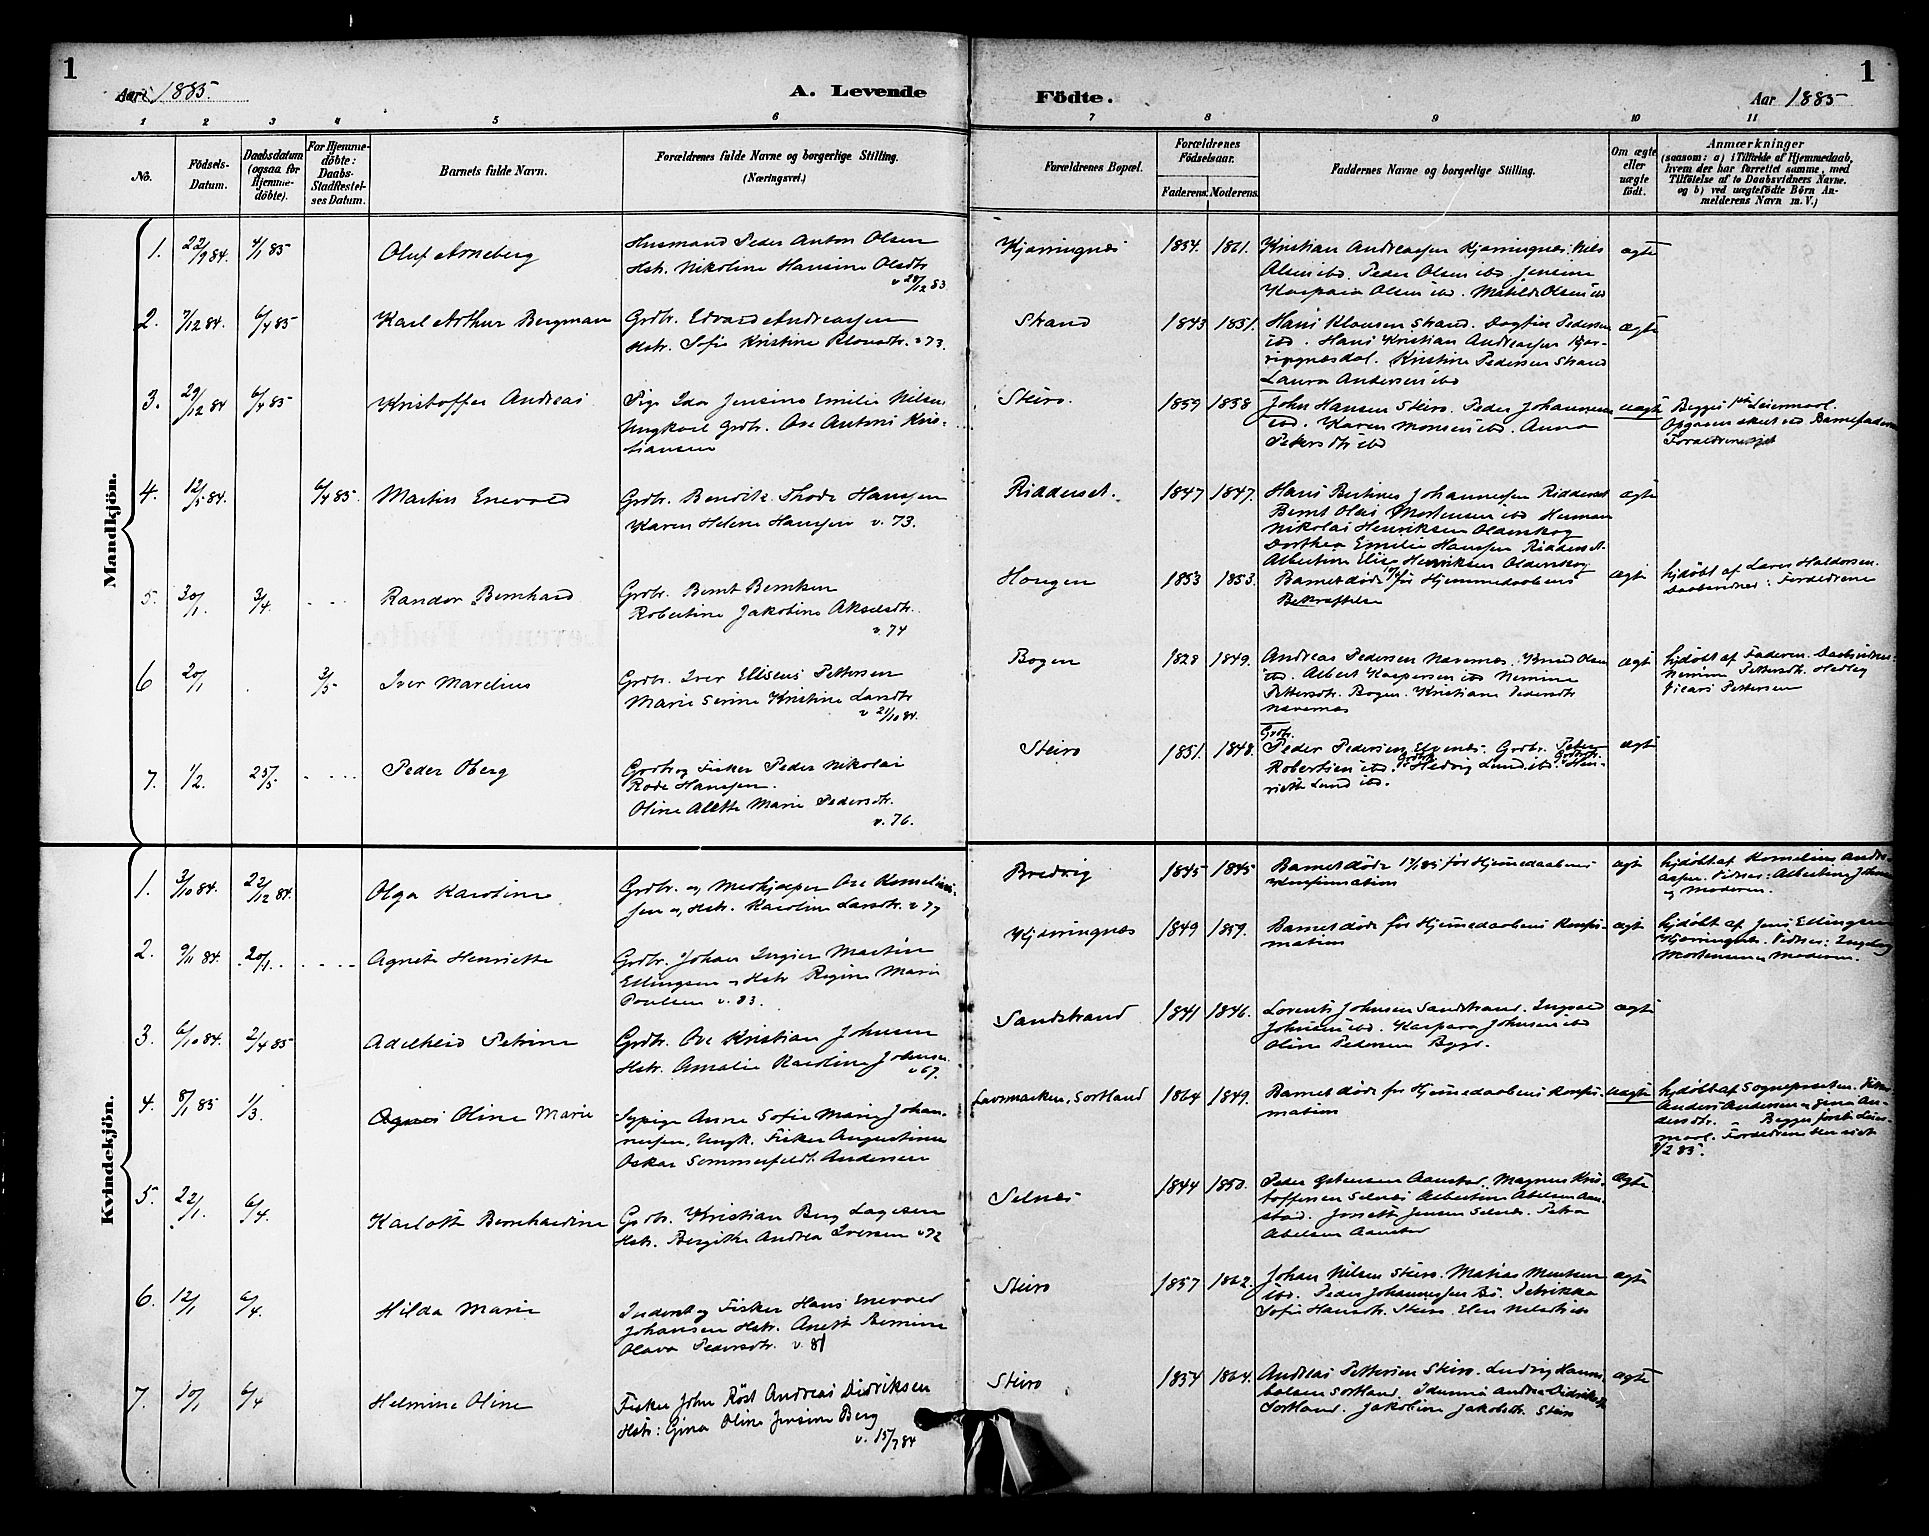 1
Aar 1885.
A. Levende
Födte.
Aar 1885
1
1 2 3 4 5 6 7 8 9 10 11
No.
Födsels-
Datum.
Daabsdatum
(ogsaa for
Hjemme-
döbte).
For Hjemme-
döbte:
Daabs-
Stadfæstel-
ses Datum.
Barnets fulde Navn.
Forældrenes fulde Navne og borgerlige Stilling.
(Næringsvei.)
Forældrenes Bopæl.
Forældrenes
Födselsaar.
Faderens. Moderens.
Faddernes Navne og borgerlige Stilling.
Om ægte
eller
uægte
födt.
Anmærkninger
(saasom: a) i Tilfælde af Hjemmedaab,
hvem der har forrettet samme, med
Tilföielse af to Daabsvidners Navne.
og b) ved uægtefödte Börn An-
melderens Navn m. V.)
Mandkjön.
1. 22/9 84. 4/1 85 Oluf Arneberg
Husmand Peder Anton Olsen
Hstr. Nikoline Hansine Olsdtr.
v 28/12 83.
Kjærringnæs 1854. 1861.
Kristian Andreassen Kjærringnæs. Nils
Olsen ibd. Peder Olsen ibd. Jensine
Kaspara Olsen ibd. Matilde Olsen ibd
ægte
2. 7/12 84. 6/4 85 Karl Arthur Bergman
Grdbr. Edvard Andreassen
Hstr. Sofie Kristine v 73.
Strand 1843 1851.
Hans Klausen Strand. Dagfin Pedersen
ibd. Hans Kristian Andreassen Kjær-
ringnæsdal. Kristine Pedersen Strand
Laura Andersen ibd
ægte
3. 29/12 84 6/4 85 Kristoffer Andreas
Pige Ida Jensine Emilie Nilsen
Ungkarl Grdbr. Ove Antoni Kris-
tiansen
Steiro. 1859 1858
John Hansen Steiro. Peder Johannesen
ibd. Karen Monsen ibd. Anna
Petersdtr ibd
uægte
Begges 1ste Leiermaal.
Opgaven skeet ved Barnefaderen
Forældrene
4. 12/5 84. 6/4 85. Martin Enevold
Grdbr. Hanssen
Karen Helene Hanssen v. 73.
Ridderset. 1847 1847.
Hans Bertines Johannessen Ridderset
Bernt Olai Mortensen ibd Herman
Nikolai Henriksen Oldenskog
Dorthea Emilie Hanssen Ridderset.
Albertine Elise Henriksen Oldenskog
ægte
5. 30/1 3/4 - - - Randor Bernhard
Grdbr. Bernt Berntsen
Robertine Jakobine Akselsdtr.
v. 74
Haugen 1853 1853.
Barnet døde før Hjemmedaabens
Bekræftelse
ægte
hjdøbt af Lars Haldorsen.
Daabsvidner: Forældrene
6 20/1 . 3/5 Iver Marelius
Grdbr. Iver Elisæus Pettersen
Marie Serine Kristine Larsdtr
v 21/10 84.
Bogen 1828 1849.
Andreas Pedersen Navernæs. Knud
ibd. Albert Kaspersen ibd Nemine
Pettersdtr. Bogen. Kristiane Pedersdtr
Navernæs
ægte
hjdøbt af Faderen. Daabsvidner:
Nemine Pettersdtr. Hedvig
Pettersen
7. 1/2. 25/5 - - - - Peder Oberg
Grdbr og Fisker Peder Nikolai
Rode Hanssen.
Oline Alette Marie Pedersdtr.
v. 76.
Steiro 1851. 1848.
Grdbr.
Peder Pedersen Elvenes. Grdbr. Peter
Robertsen ibd. Hedvig Lund ibd. Hen-
riette Lund ibd.
ægte
Kvindekjön.
1. 3/10 84. 22/12 84. Olga Karoline
Grdbr. og Ove Kornelius-
sen og Hstr. Karoline Larsdtr. v 77
Bredvig 1845 1845
Barnet døde 17/1 85 før Hjemmedaabens
Konfirmation
ægte
hjdøbt af Kornelius Andre-
assen. Vidner: Albertine Johnsen
og Moderen.
2. 9/11 84. 20/1. - - - - Agnete Henriette
Grdbr. Johan Ingier Martin
Ellingsen og Hstr Regine Marie
Poulsen v. 83.
Kjærringnæs 1849 1859.
Barnet døde før Hjemmedaabens Konfir-
mation
ægte
hjdøbt af Jens Ellingsen
Kjærringnæs. Vidner: Ingeborg
Mortensen og Moderen.
3. 6/10 84. 2/4 85 Adelheid Petrine
Grdbr. Ove Kristian Johnsen
Hstr. Amalie Karoline Johnsen.
v 67.
Sandstrand 1841 1846.
Lorents Johnsen Sandstrand. Ingvald
Johnsen ibd. Kaspara Johnsen ibd
Oline Pedersen Bygd.
ægte
4. 8/1 85 1/3. Agnes Oline Marie
Sypige Anne Sofie Marie Johan-
nessen, Ungk. Fisker Augustinus
Oskar Sommerfeldt Andersen
Lavmarken, Sortland 1864 1849.
Barnet døde før Hjemmedaabens Konfir-
mation
uægte
hjdøbt af Sognepresten. Vidner
Anders Andersen og Gina An-
dersdtr. Begges første Leier-
maal. Forældrene viet
9/2 85.
5. 22/1. 6/4. Karlotte Bernhardine
Grdbr. Kristian Berg Lagesen
Hstr. Bergithe Andrea Iversen v 72
Selnæs 1844 1850.
Peder Aanstad. Magnus Kris-
toffersen Selnæs Albertine Abelsen Aan-
stad. Josette Jensen Selnæs. Petra
Abelsen Aanstad
ægte
6. 12/1 6/4. Hilda Marie
Inderst og Fisker Hans Enevold
Johansen Hstr. Anette Bernine
Olava Pedersdtr. v. 81
Steiro 1857 1862.
Johan Nilsen Steiro. Matias Mentsen
ibd. Peder Johannessen Bø. Petrikka
Sofie Hansdtr. Steiro. Elen Nilsdtr ibd
ægte
7. 10/1 6/4 Helmine Oline
Fisker John Röst Andreas Didriksen
Hstr: Gina Oline Jensine Berg
v. 15/7 84
Steiro 1854 1864.
Andreas Pettersen Steiro. Ludvig Hanni-
balsen Sortland. Idunna Andrea Didriksen
Sortland. Jakobine Jakobsdtr. Steiro
ægte